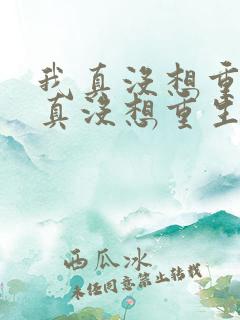 我真没想重
真没想重生
西瓜冰
未经同意禁止转载